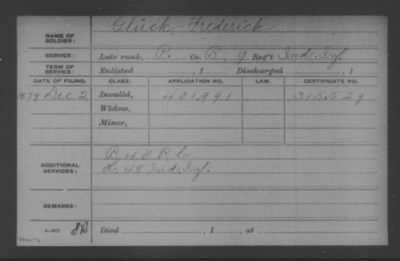 Glück Frederick
NAME OF SOLDIER:
SERVICE: Late rank, P. Co. B, 9 Reg't Ind. Inf.
TERM OF SERVICE: Enlisted , 1 Discharged , 1
DATE OF FILING. CLASS. APPLICATION NO. LAW. CERTIFICATE NO.
1879 Dec 2 Invalid, 401,991 315,529
Widow,
Minor,
ADDITIONAL SERVICES:
H. 45 Ind. Inf.
REMARKS:
Died , 1 , at